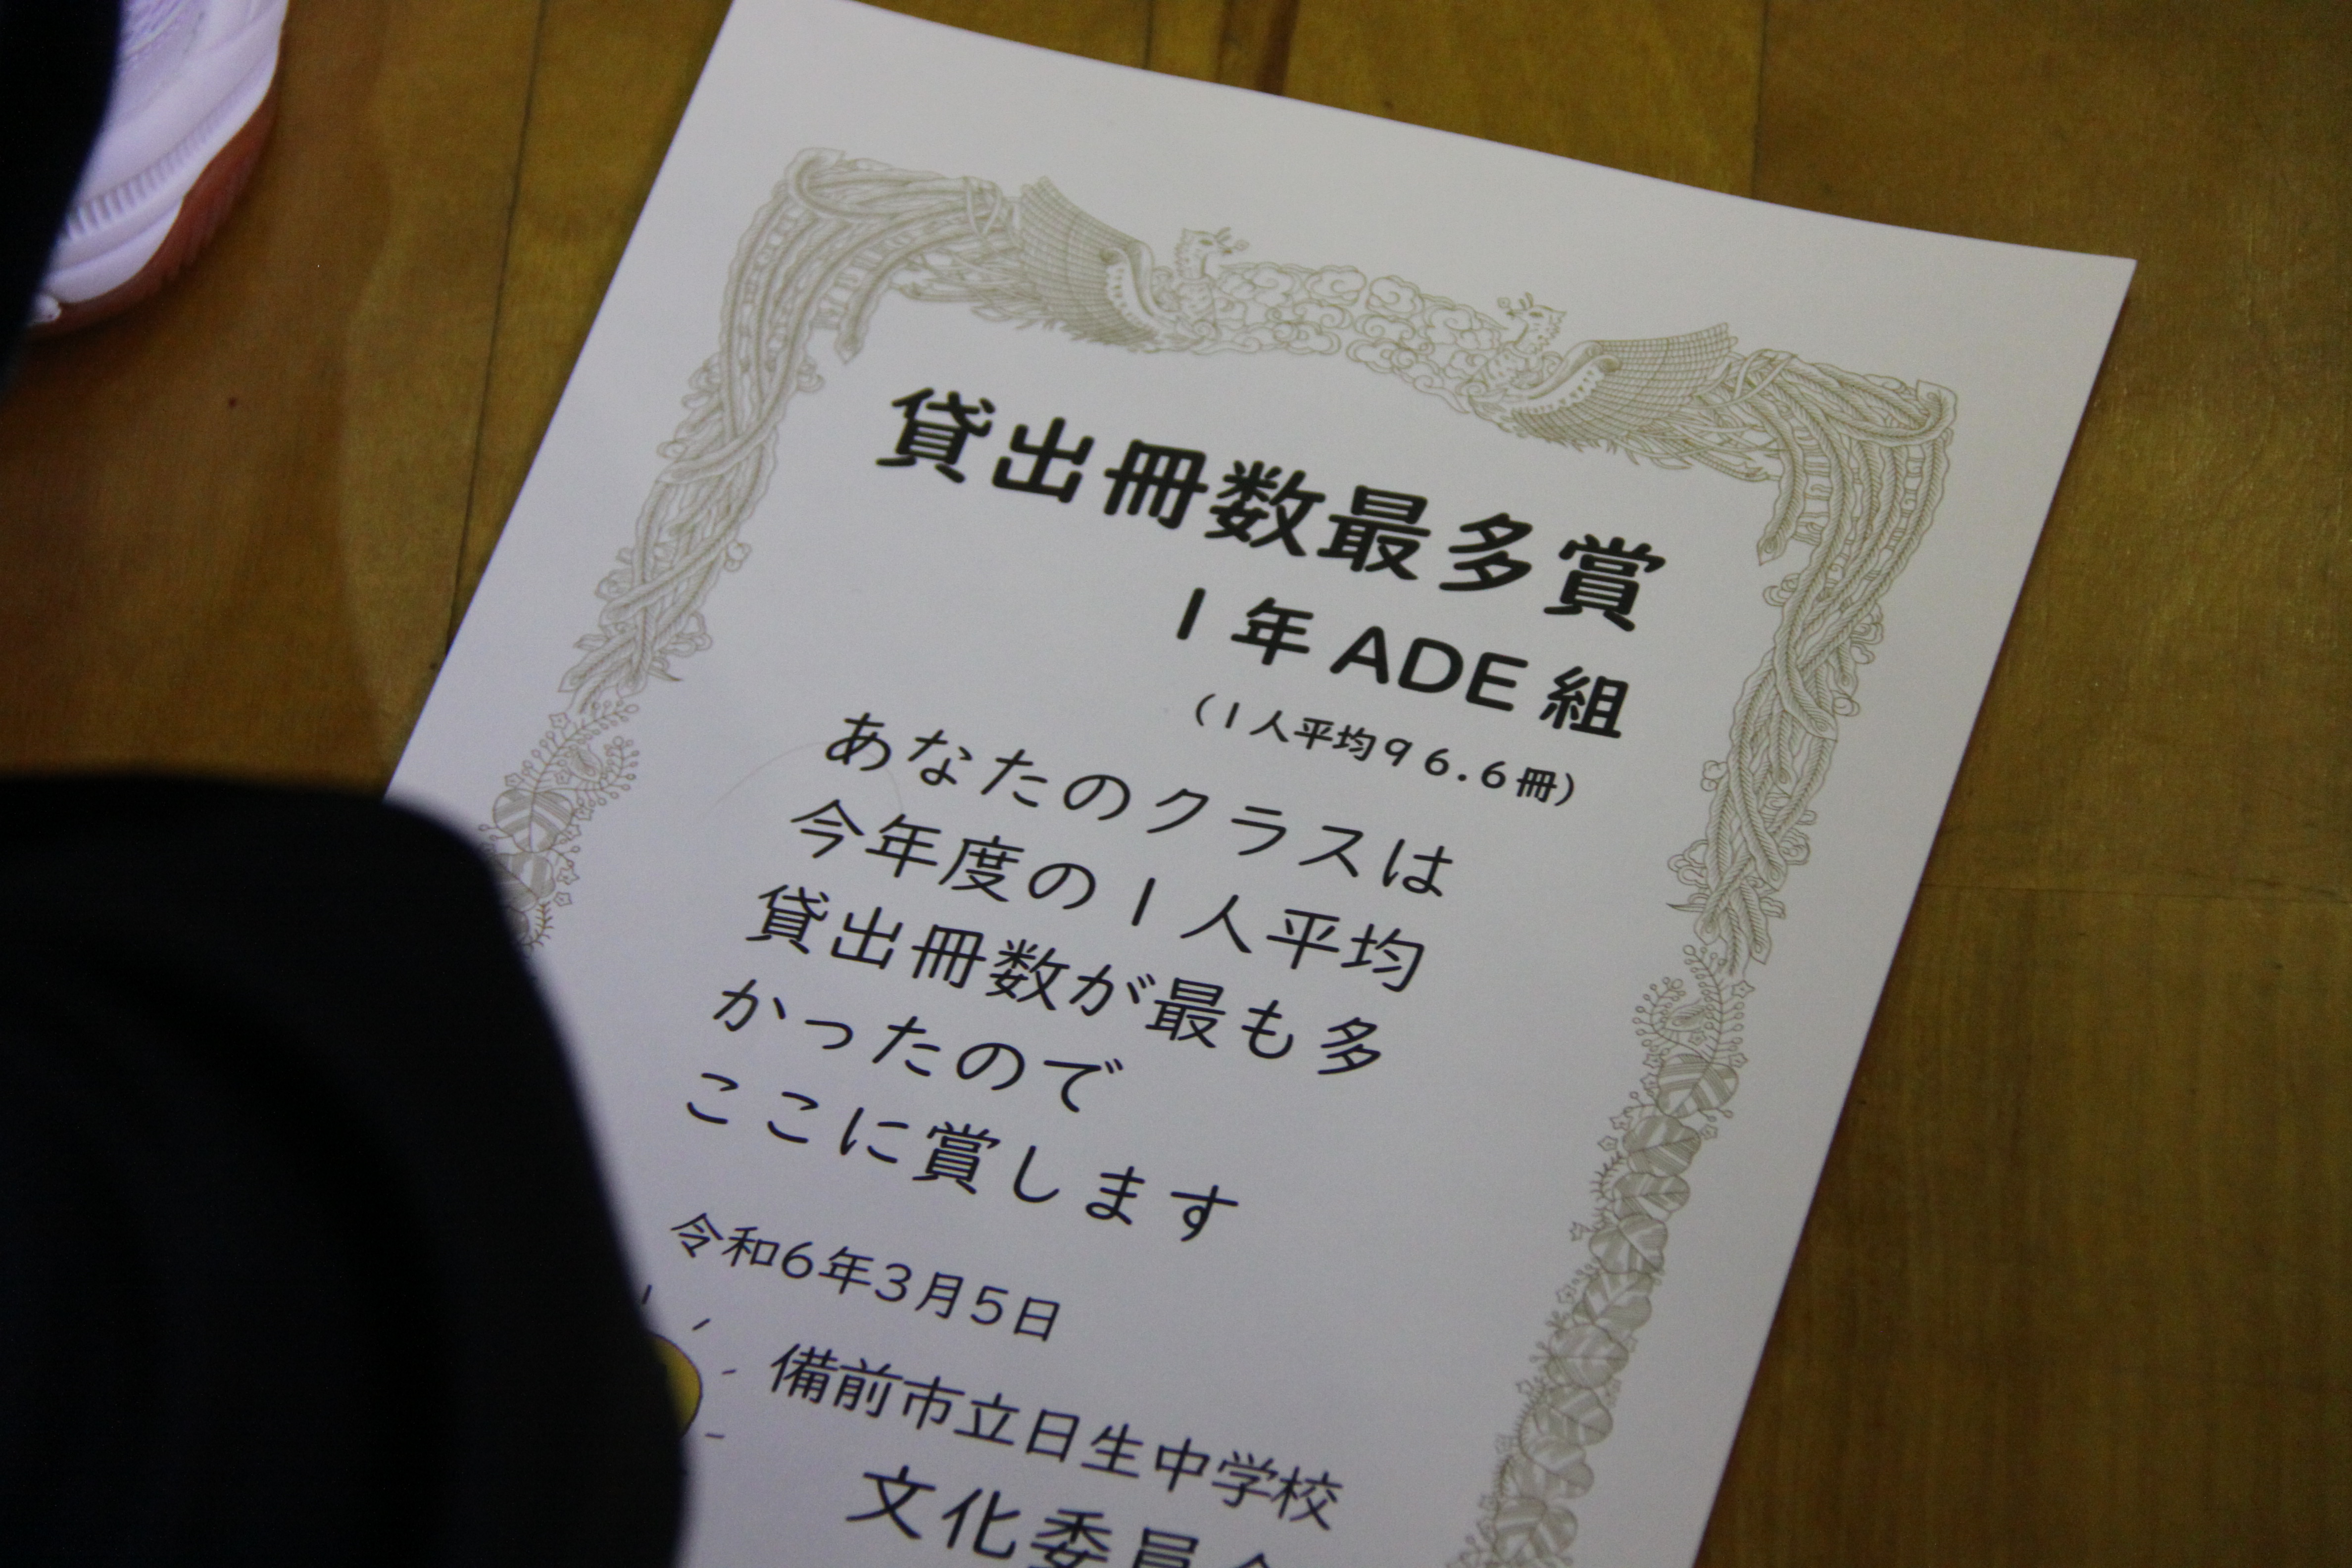 貸出冊数最多賞
1年ADE組
(1人平均96.6冊)
あなたのクラスは
今年度の1人平均
貸出冊数が最も多
かったので
ここに賞します
令和6年3月5日
備前市立日生中学校
文化委員会